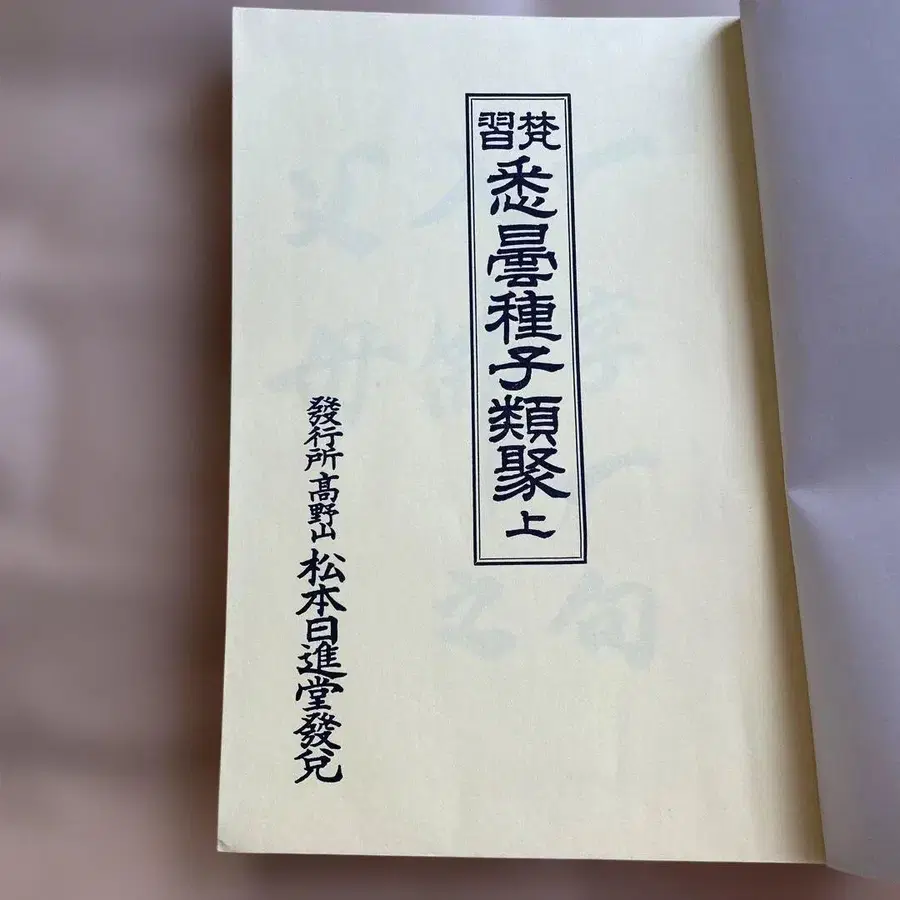 梵習 悉曇種子類聚 上
發行所 高野山 松本日進堂發兌